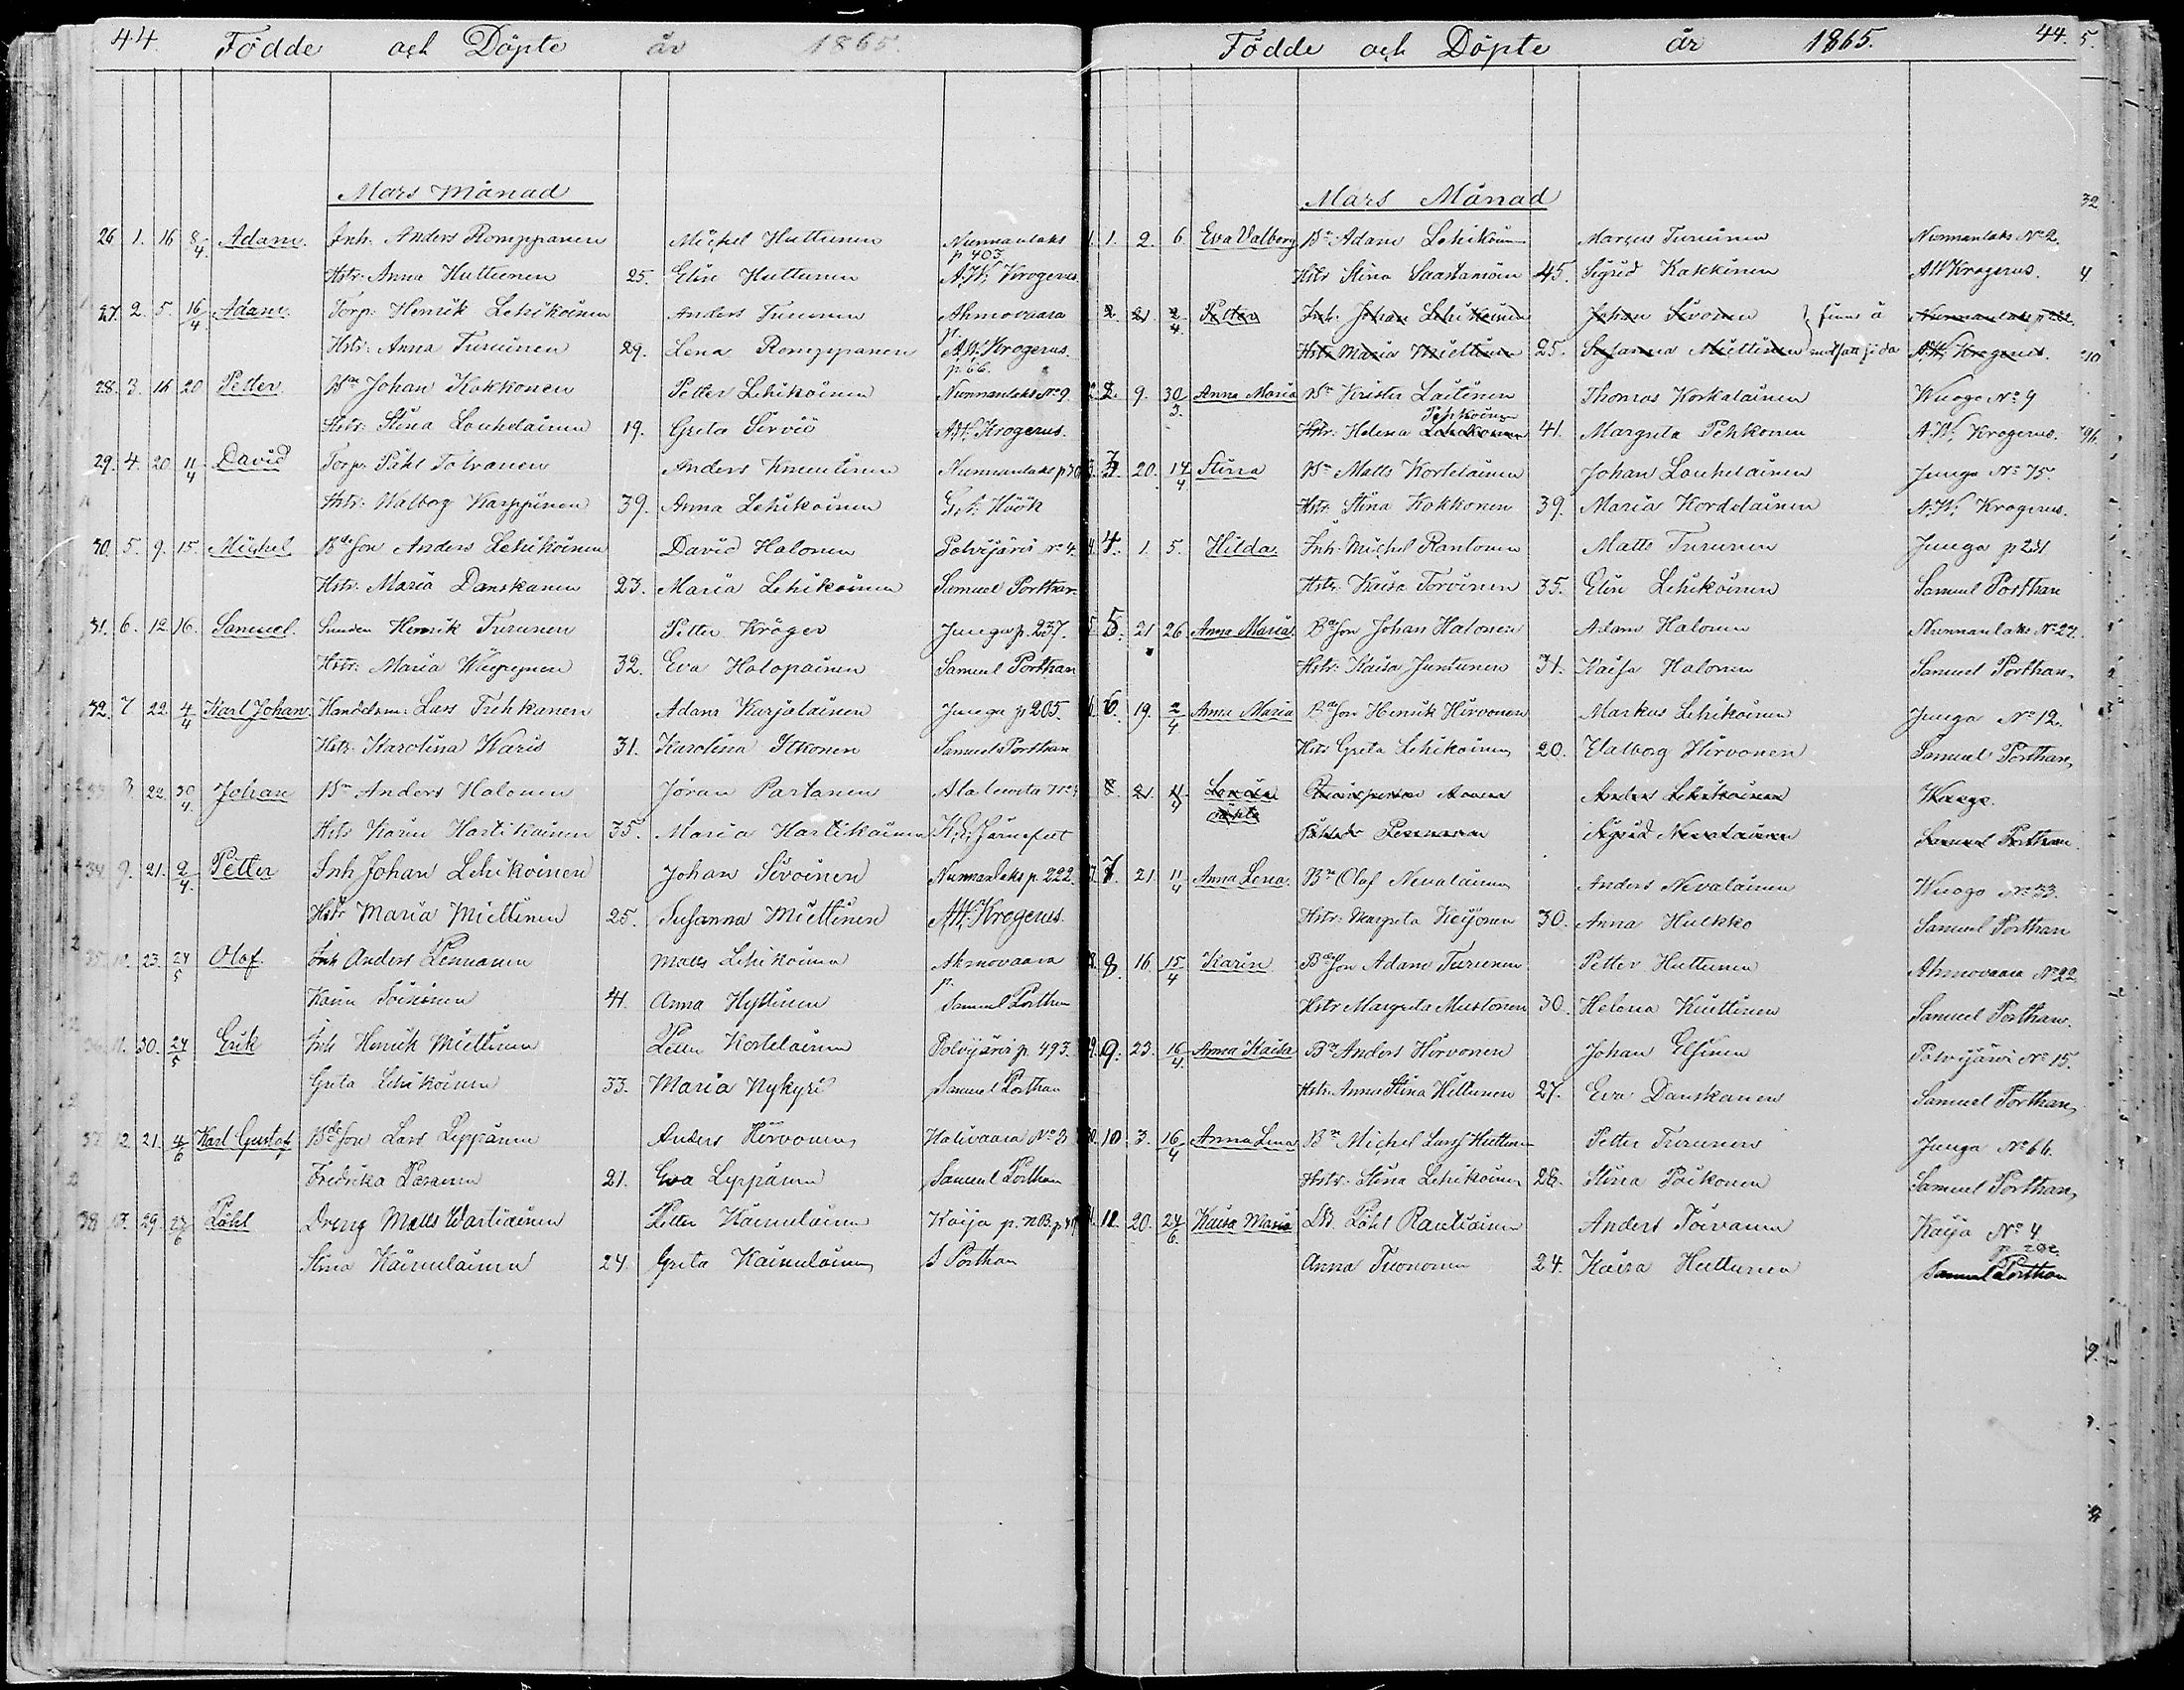 44. Födde och Döpte år 1865.
Mars Månad
26 1. 16 8/4 Adam. Inh. Anders Romppanen Michel Huttunen Nunnanlaks
p 403
Hstr. Anna Huttunen 25. Elin Huttunen A.W. Krogerus.
27. 2. 5. 16/4 Adam. Torp. Henrik Lehikoinen Anders Turunen Ahmovaara
Hstr. Anna Turunen 29. Lena Romppanen A.W. Krogerus.
p. 66.
28. 3. 16 20 Petter Bn Johan Kokkonen Petter Lehikoinen Nunnanlaks No 9.
Hstr. Stina Louhelainen 19. Greta Sirviö A.W. Krogerus.
29. 4. 20 11/4 David Torp. Påhl Tolvanen Anders Kinnunen Nunnanlaks
Hstr. Walborg Karppinen 39. Anna Lehikoinen Höök
30. 5. 9. 15. Michel Bdeson Anders Lehikoinen David Halonen Polvijärvi No 4.
Hstr. Maria Danskanen 23. Maria Lehikoinen Samuel Porthan
31. 6. 12 16. Samuel. Henrik Turunen Petter Kröger Junga p. 237.
Hstr. Maria 32. Eva Holopainen Samuel Porthan
32. 7. 22 4/4 Karl Johan. Handelsm. Lars Adam Karjalainen Junga p 205.
Hstr. Karolina Waris 31. Karolina Itkonen Samuel Porthan
33 8. 22 30/4. Johan Bn Anders Halonen Jöran Partanen
Hstr Karin Hartikainen 35. Maria Hartikainen Järnefelt
34 9. 21. 2/4. Petter Inh Johan Lehikoinen Johan Sivoinen Nunnanlaks p. 222.
Hstr Maria Miettinen 25. Susanna Miettinen A.W. Krogerus.
35. 10. 23. 24/5 Olof. Inh Anders Pennanen Matts Lehikoinen Ahmovaara
p.
Karin 41. Anna Hyttinen Samuel Porthan
36. 11. 30. 24/5 Erik Inh Henrik Miettinen Petter Kortelainen Polvijärvi p. 493.
Greta Lehikoinen 33. Maria Nykyri Samuel Porthan
37. 12. 21. 4/6 Karl Gustaf Bdeson Lars Leppänen Anders Hirvonen No 3
Fredrika 21. Eva Leppänen Samuel Porthan
38 13. 29. Påhl Dreng Matts Wartiainen Petter Kaimulainen Kaija p.
Stina Kaimulainen 24. Greta Kaimulainen S Porthan
Födde och Döpte år 1865. 44.
Mars Månad
1. 1. 2. 6 Eva Valborg Bn Adam Lehikoinen Marcus Turunen Nunnanlaks No 2.
Hstr Stina Saastamoin 45. Sigrid Kakkinen A W Krogerus.
2. 21. 2/4 Petter Inh. Johan Lehikoinen Johan Sivonen finns å Nunnanlaks p 222.
Hstr. Maria Miettinen 25. Susanna Miettinen motsatt sida A.W. Krogerus.
2. 2. 9. 30/3. Anna Maria Bn Krister Laitinen Thomas Korkalainen Wuogo No 9
Pehkoinen
Hstr. Helena Lehikoinen 41. Margreta Pehkonen A.W. Krogerus.
3. 3. 20. 14/4 Stina Bn Matts Kortelainen Johan Louhelainen Junga No 75.
Hstr. Stina Kokkonen 39. Maria Kordelainen A.W. Krogerus.
4. 4. 1. 5. Hilda. Inh. Michel Rantonen Matts Turunen Junga p 231.
Hstr. Kaisa Torvinen 35. Elin Lehikoinen Samuel Porthan
5. 5. 21 26 Anna Maria. Bdeson Johan Halonen Adam Halonen Nunnanlaks No 27.
Hstr. Kaisa Juntunen 31. Kaisa Halonen Samuel Porthan
6. 6. 19. 2/4 Anna Maria Bdeson Henrik Hirvonen Markus Lehikoinen Junga No 12.
Hstr Greta Lehikoinen 20. Walborg Hirvonen Samuel Porthan
8. 21. Anders Lehikoinen Wuogo.
Sigrid Nevalainen Samuel Porthan.
7. 7. 21 11/4 Anna Lena. Bn Olof Nevalainen Anders Nevalainen Wuogo No 33.
Hstr. Margreta Keijonen 30. Anna Hulkko Samuel Porthan
8. 8 16. 15/4 Karin Bdeson Adam Turunen Petter Huttunen Ahmovaara No 22
Hstr Margreta Mustonen 30. Helena Kuittinen Samuel Porthan.
9. 9. 23. 16/4. Anna Kaisa Bn Anders Hirvonen Johan Elfinen Polvijärvi No 15.
Hstr. Anna Stina Hiltunen 27. Eva Danskanen Samuel Porthan
10. 10. 3. 16/4 Anna Lena Bn Michel Larss Huttunen Petter Turunen Junga No 66.
Hstr. Stina Lehikoinen 26. Stina Poikonen Samuel Porthan
12. 20. 24/6. Kaisa Maria Påhl Rautiainen Anders Toivanen Kaija No 4
p. 202.
Anna Tuononen 24. Kaisa Huttunen Samuel Porthan